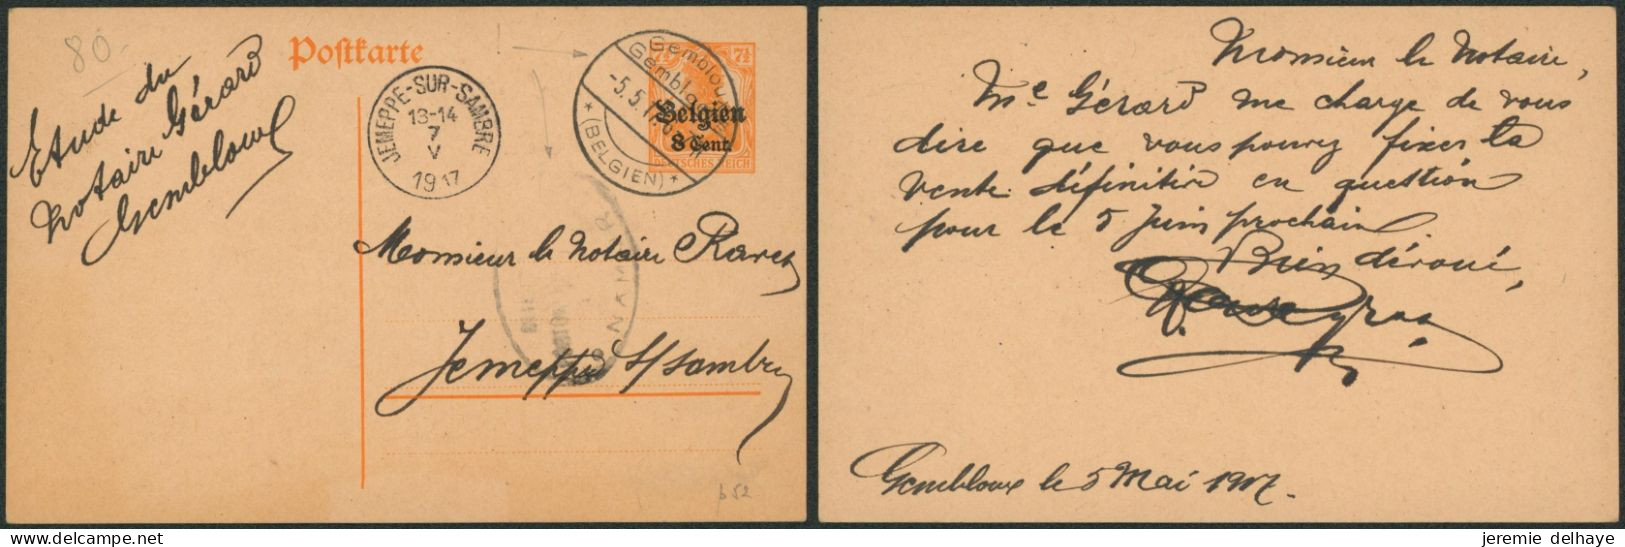 80.
Postkarte
Etude du
Notaire Gérard
Gembloux
JEMEPPE-SUR-SAMBRE
13-14
7
V
1917
Gembloux
Gembloux
-5.5.17.
* (BELGIEN) *
7½ 7½
Belgien
8 Cent.
DEUTSCHES REICH
NAMUR
Monsieur le Notaire
Jemeppe s/sambre
b 52
Monsieur le Notaire,
Me Gérard me charge de vous
dire que vous pouvez fixer la
vente définitive en question
pour le 5 Juin prochain.
Bien dévoué,
Gembloux le 5 Mai 1917.
jeremie delhaye